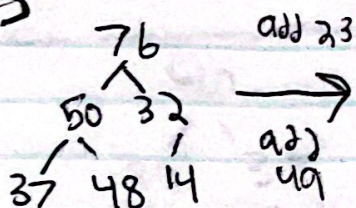 76
add 23
50 32
add
49
37 48 14